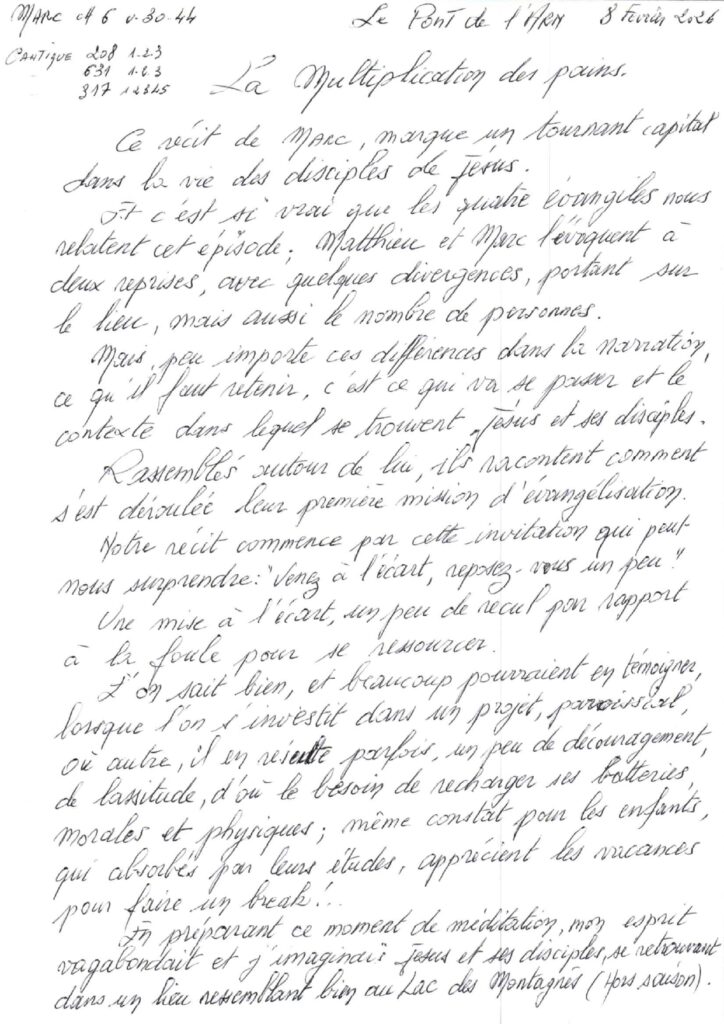 MARC ch 6 v. 30-44
Le Pont de l'ARN 8 Février 2026
CANTIQUE 208 1.2.3
631 1.2.3
317 12345
La Multiplication des pains.
Ce récit de MARC, marque un tournant capital
dans la vie des disciples de Jésus.
Et c'est si vrai que les quatre évangiles nous
relatent cet épisode; Matthieu et Marc l'évoquent à
deux reprises, avec quelques divergences, portant sur
le lieu, mais aussi le nombre de personnes.
Mais, peu importe ces différences dans la narration,
ce qu'il faut retenir, c'est ce qui va se passer et le
contexte dans lequel se trouvent Jésus et ses disciples.
Rassemblés autour de lui, ils racontent comment
s'est déroulée leur première mission d'évangélisation.
Notre récit commence par cette invitation qui peut
nous surprendre: "Venez à l'écart, reposez-vous un peu".
Une mise à l'écart, un peu de recul par rapport
à la foule pour se ressourcer.
L'on sait bien, et beaucoup pourraient en témoigner,
lorsque l'on s'investit dans un projet, paroissial,
où autre, il en resulte parfois, un peu de découragement,
de lassitude, d'où le besoin de recharger ses batteries,
morales et physiques; même constat pour les enfants,
qui absorbés par leurs études, apprécient les vacances
pour faire un break!..
En préparant ce moment de méditation, mon esprit
vagabondait et j'imaginais Jesus et ses disciples, se retrouvant
dans un lieu ressemblant bien au Lac des Montagnès (Hors saison).